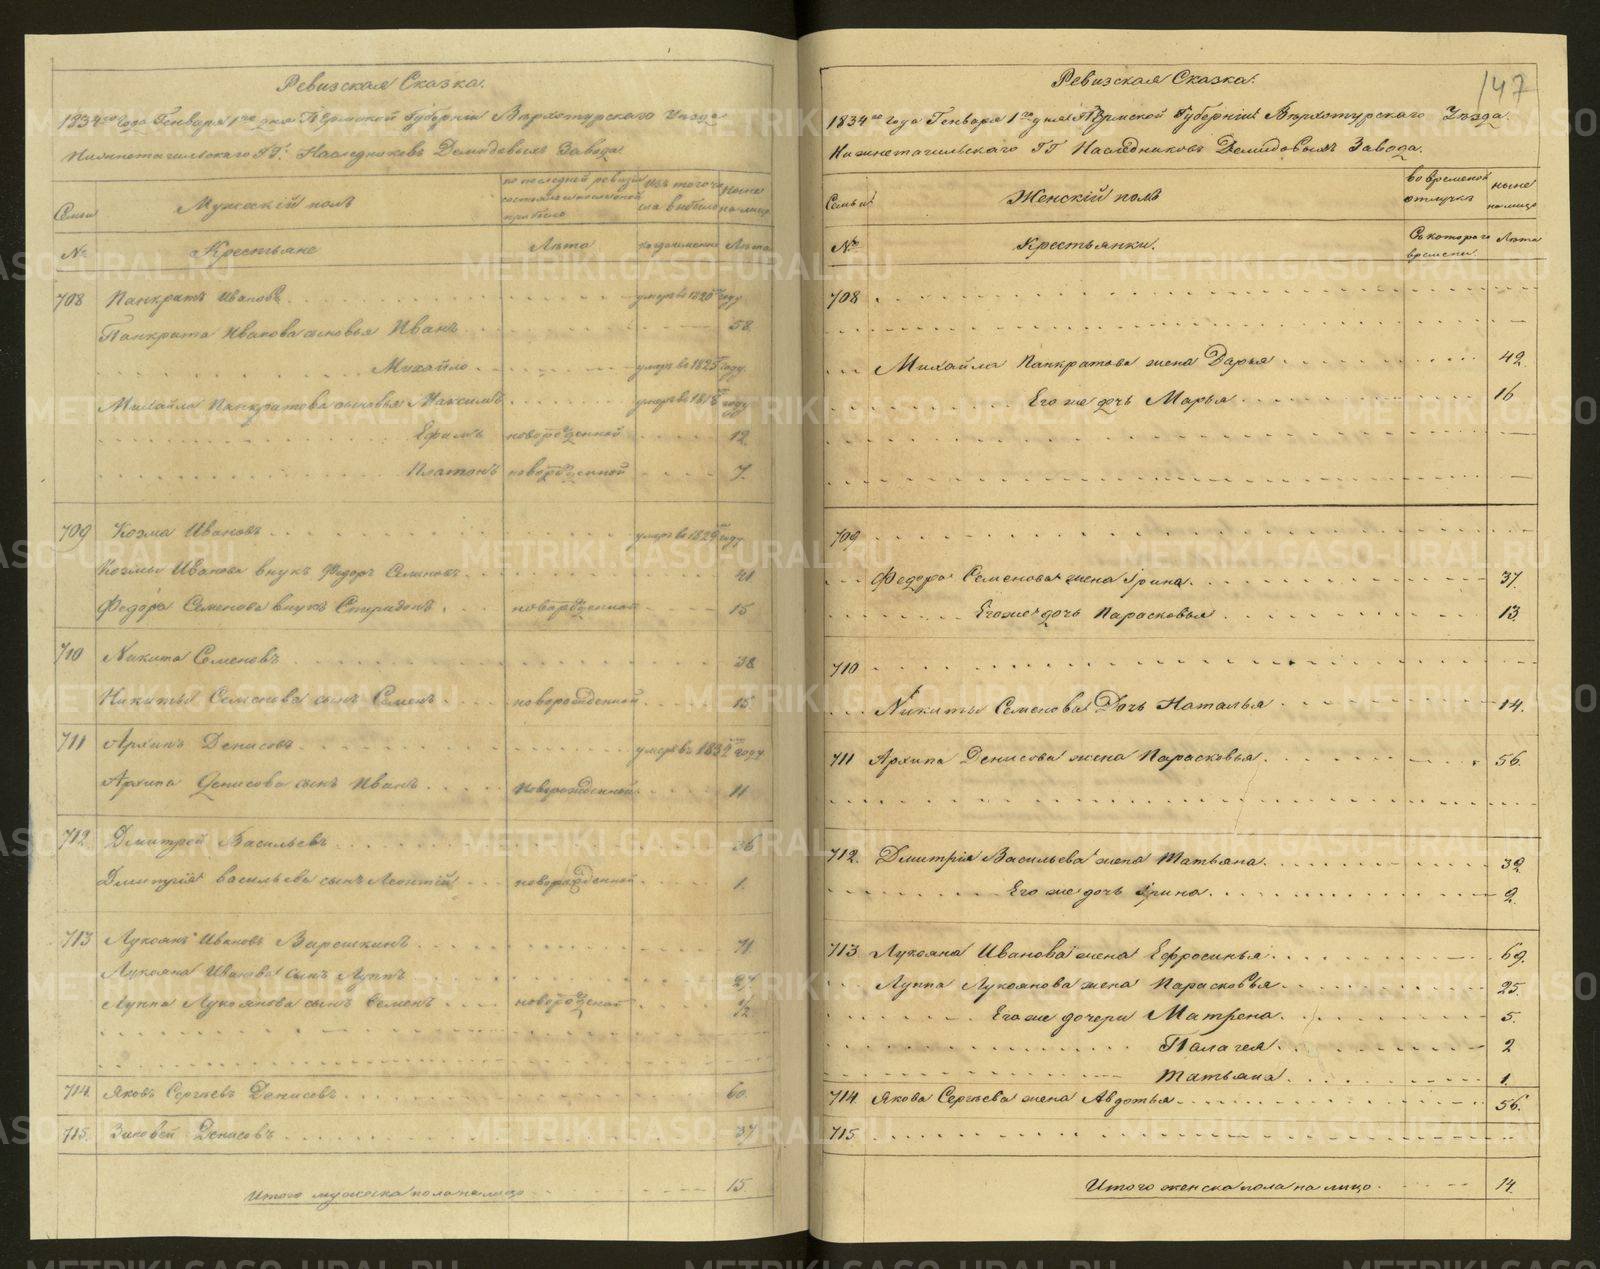 Ревизская Сказка.
1834го года Генваря 1го дня Пермской Губернiи Верхотурского Уезда
Нижнетагильскаго ГГ. Наследниковъ Демидовыхъ Завода
Семьи
Мужескiй полъ
по последней ревизiи состояло и после оной прибыло
Изъ того числа выбыло
Ныне на лицо
№
Крестьяне
Лета
когда именно
Лета
708 Панкратъ Ивановъ умеръ въ 1820м году
Панкрата Иванова сыновья Иванъ 58
Михайло умеръ въ 1825м году
Михайла Панкратова сыновья Максимъ умеръ въ 1818м году
Ефимъ новорожденной 12
Платонъ новорожденной 7.
709 Козма Ивановъ умеръ въ 1829м году
Козмы Иванова внукъ Федоръ Семеновъ 41
Федора Семенова внукъ Спиридонъ новорожденной 15
710 Никита Семеновъ 38
Никиты Семенова сынъ Семенъ новорожденной 15
711 Архипъ Денисовъ умеръ въ 1832м году
Архипа Денисова сынъ Иванъ Новорожденной 11
712 Дмитрей Васильевъ 36
Дмитрiя Васильева сынъ Леонтiй новорожденной 1.
713 Лукоянъ Ивановъ Варешкинъ 71
Лукояна Иванова сынъ Луппъ 27
Луппа Лукоянова сынъ Семенъ новорожденой 1/2
714. Яковъ Сергеевъ Денисовъ 60.
715. Зиновей Денисовъ 37
Итого мужеска пола на лицо 15.
147
Ревизская Сказка.
1834го года Генваря 1го дня Пермской Губернiи Верхотурскаго Уезда
Нижнетагильскаго ГГ Наследниковъ Демидовыхъ Завода.
Семьи
Женскiй полъ
во временой отлучке
ныне на лицо
№
Крестьянки.
Съ котораго времени.
Лета
708
Михайла Панкратова жена Дарья 42
Его же дочь Марья 16
709
Федора Семенова жена Iрина. 37
Его же дочь Парасковья 13.
710
Никиты Семенова Дочь Наталья 14.
711 Архипа Денисова жена Парасковья. 56.
712. Дмитрiя Васильева жена Татьяна. 32
Его же дочь Iрина. 2.
713 Лукояна Иванова жена Ефросинья 69.
Луппа Лукоянова жена Парасковья 25.
Его же дочери Матрена. 5.
Палагея 2
Татьяна 1.
714. Якова Сергеева жена Авдотья 56.
715
Итого женска пола на лицо. 14.
METRIKI.GASO-URAL.RU